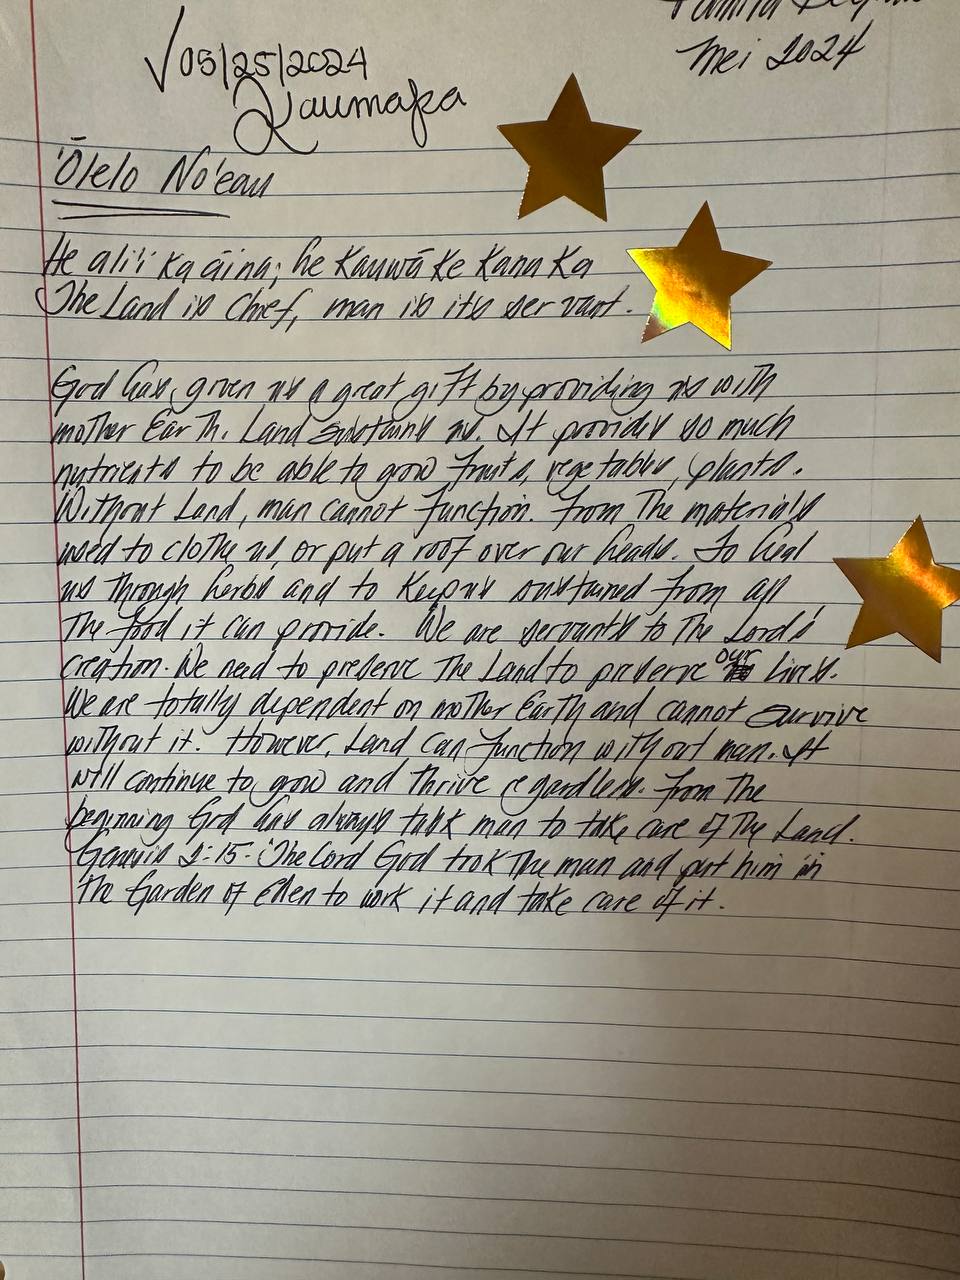 Mei 2024
√05/25/2024
Kaumaka
'Ōlelo No'eau
He ali'i ka āina; he Kauwā ke Kanaka
The Land is Chief, man is its servant.
God has given us a great gift by providing us with
mother Earth. Land sustains us. It provides so much
nutrients to be able to grow fruits, vegetables, plants.
Without Land, man cannot function. From the materials
used to clothe us, or put a roof over our heads. To heal
us through herbs and to keep us sustained from all
the food it can provide. We are servants to the Lord's
creation. We need to preserve the Land to preserve our lives.
We are totally dependent on mother Earth and cannot survive
without it. However, Land can function without man. It
will continue to grow and thrive regardless. From the
beginning God has always told man to take care of the Land.
Genesis 2:15. The Lord God took the man and put him in
the Garden of Eden to work it and take care of it.